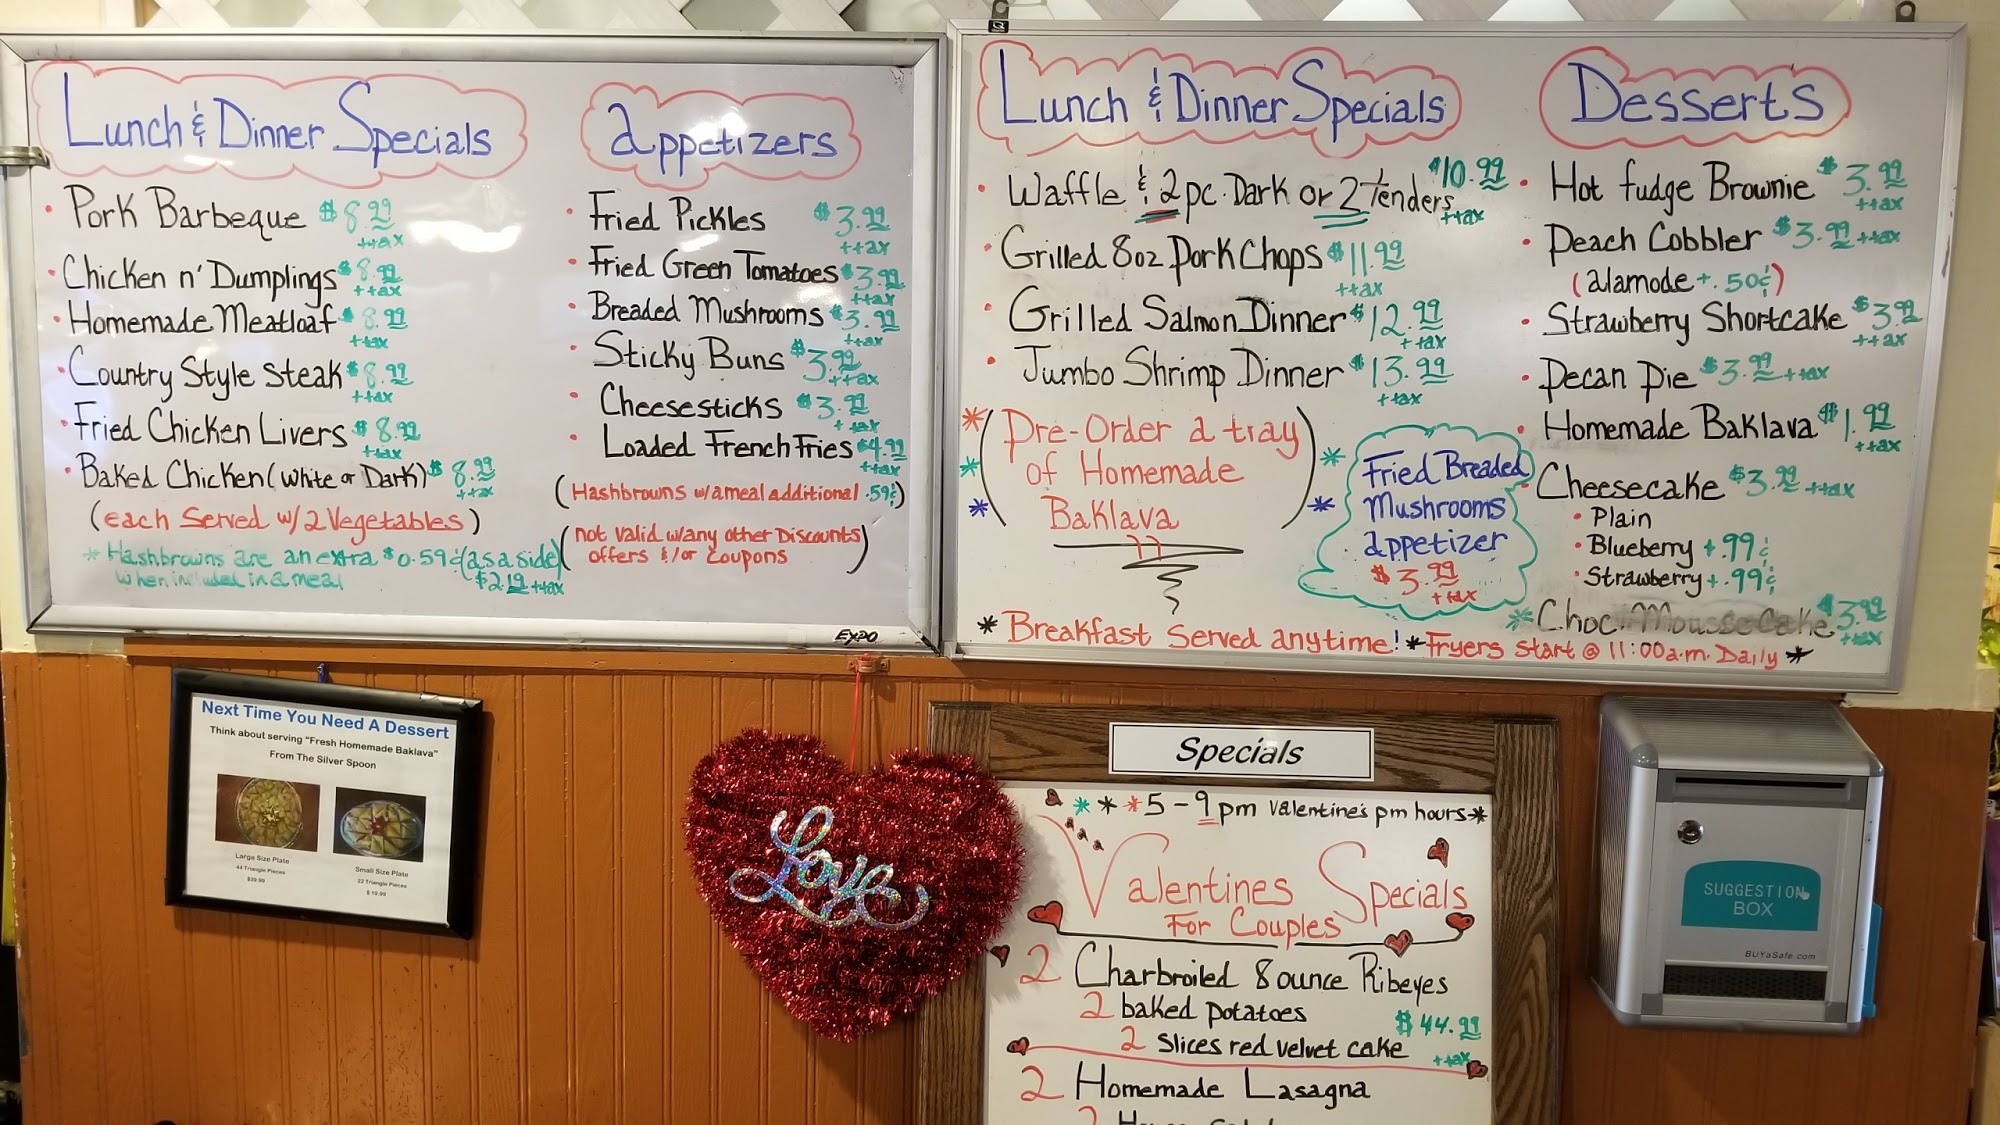 Lunch & Dinner Specials
• Pork Barbeque $8.99 ++ax
• Chicken n' Dumplings $8.99 ++ax
• Homemade Meatloaf $8.99 ++ax
• Country Style Steak $8.99 ++ax
• Fried Chicken Livers $8.99 ++ax
• Baked Chicken (White or Dark) $8.99 ++ax
(each Served w/2 Vegetables)
* Hashbrowns are an extra $0.59¢ (as a side)
when included in a meal $2.19 ++ax
appetizers
• Fried Pickles $3.99 ++ax
• Fried Green Tomatoes $3.99 ++ax
• Breaded Mushrooms $3.99 ++ax
• Sticky Buns $3.99 ++ax
• Cheesesticks $3.99 ++ax
• Loaded French Fries $4.99 ++ax
(Hashbrowns w/a meal additional .59¢)
(not valid w/any other Discounts
offers &/or Coupons)
EXPO
Lunch & Dinner Specials
• Waffle & 2 pc. Dark or 2 Tenders $10.99 ++ax
• Grilled 8oz Pork Chops $11.99 ++ax
• Grilled Salmon Dinner $12.99 ++ax
• Jumbo Shrimp Dinner $13.99 ++ax
Pre-Order a tray
of Homemade
Baklava
Fried Breaded
Mushrooms
appetizer
$3.99 ++ax
Desserts
• Hot fudge Brownie $3.99 ++ax
• Peach Cobbler $3.99 ++ax
(alamode +.50¢)
• Strawberry Shortcake $3.99 ++ax
• Pecan Pie $3.99 ++ax
• Homemade Baklava $1.99 ++ax
• Cheesecake $3.99 ++ax
• Plain
• Blueberry +.99¢
• Strawberry +.99¢
* Choc Mousse Cake $3.99 ++ax
* Breakfast Served anytime! * Fryers start @ 11:00 a.m. Daily *
Next Time You Need A Dessert
Think about serving "Fresh Homemade Baklava"
From The Silver Spoon
Large Size Plate
44 Triangle Pieces
$39.99
Small Size Plate
22 Triangle Pieces
$19.99
Love
Specials
* * * 5 - 9 pm Valentine's pm hours *
Valentines Specials
For Couples
2 Charbroiled 8 ounce Ribeyes
2 baked potatoes
2 slices red velvet cake $44.99 ++ax
2 Homemade Lasagna
SUGGESTION
BOX
BUYaSafe.com